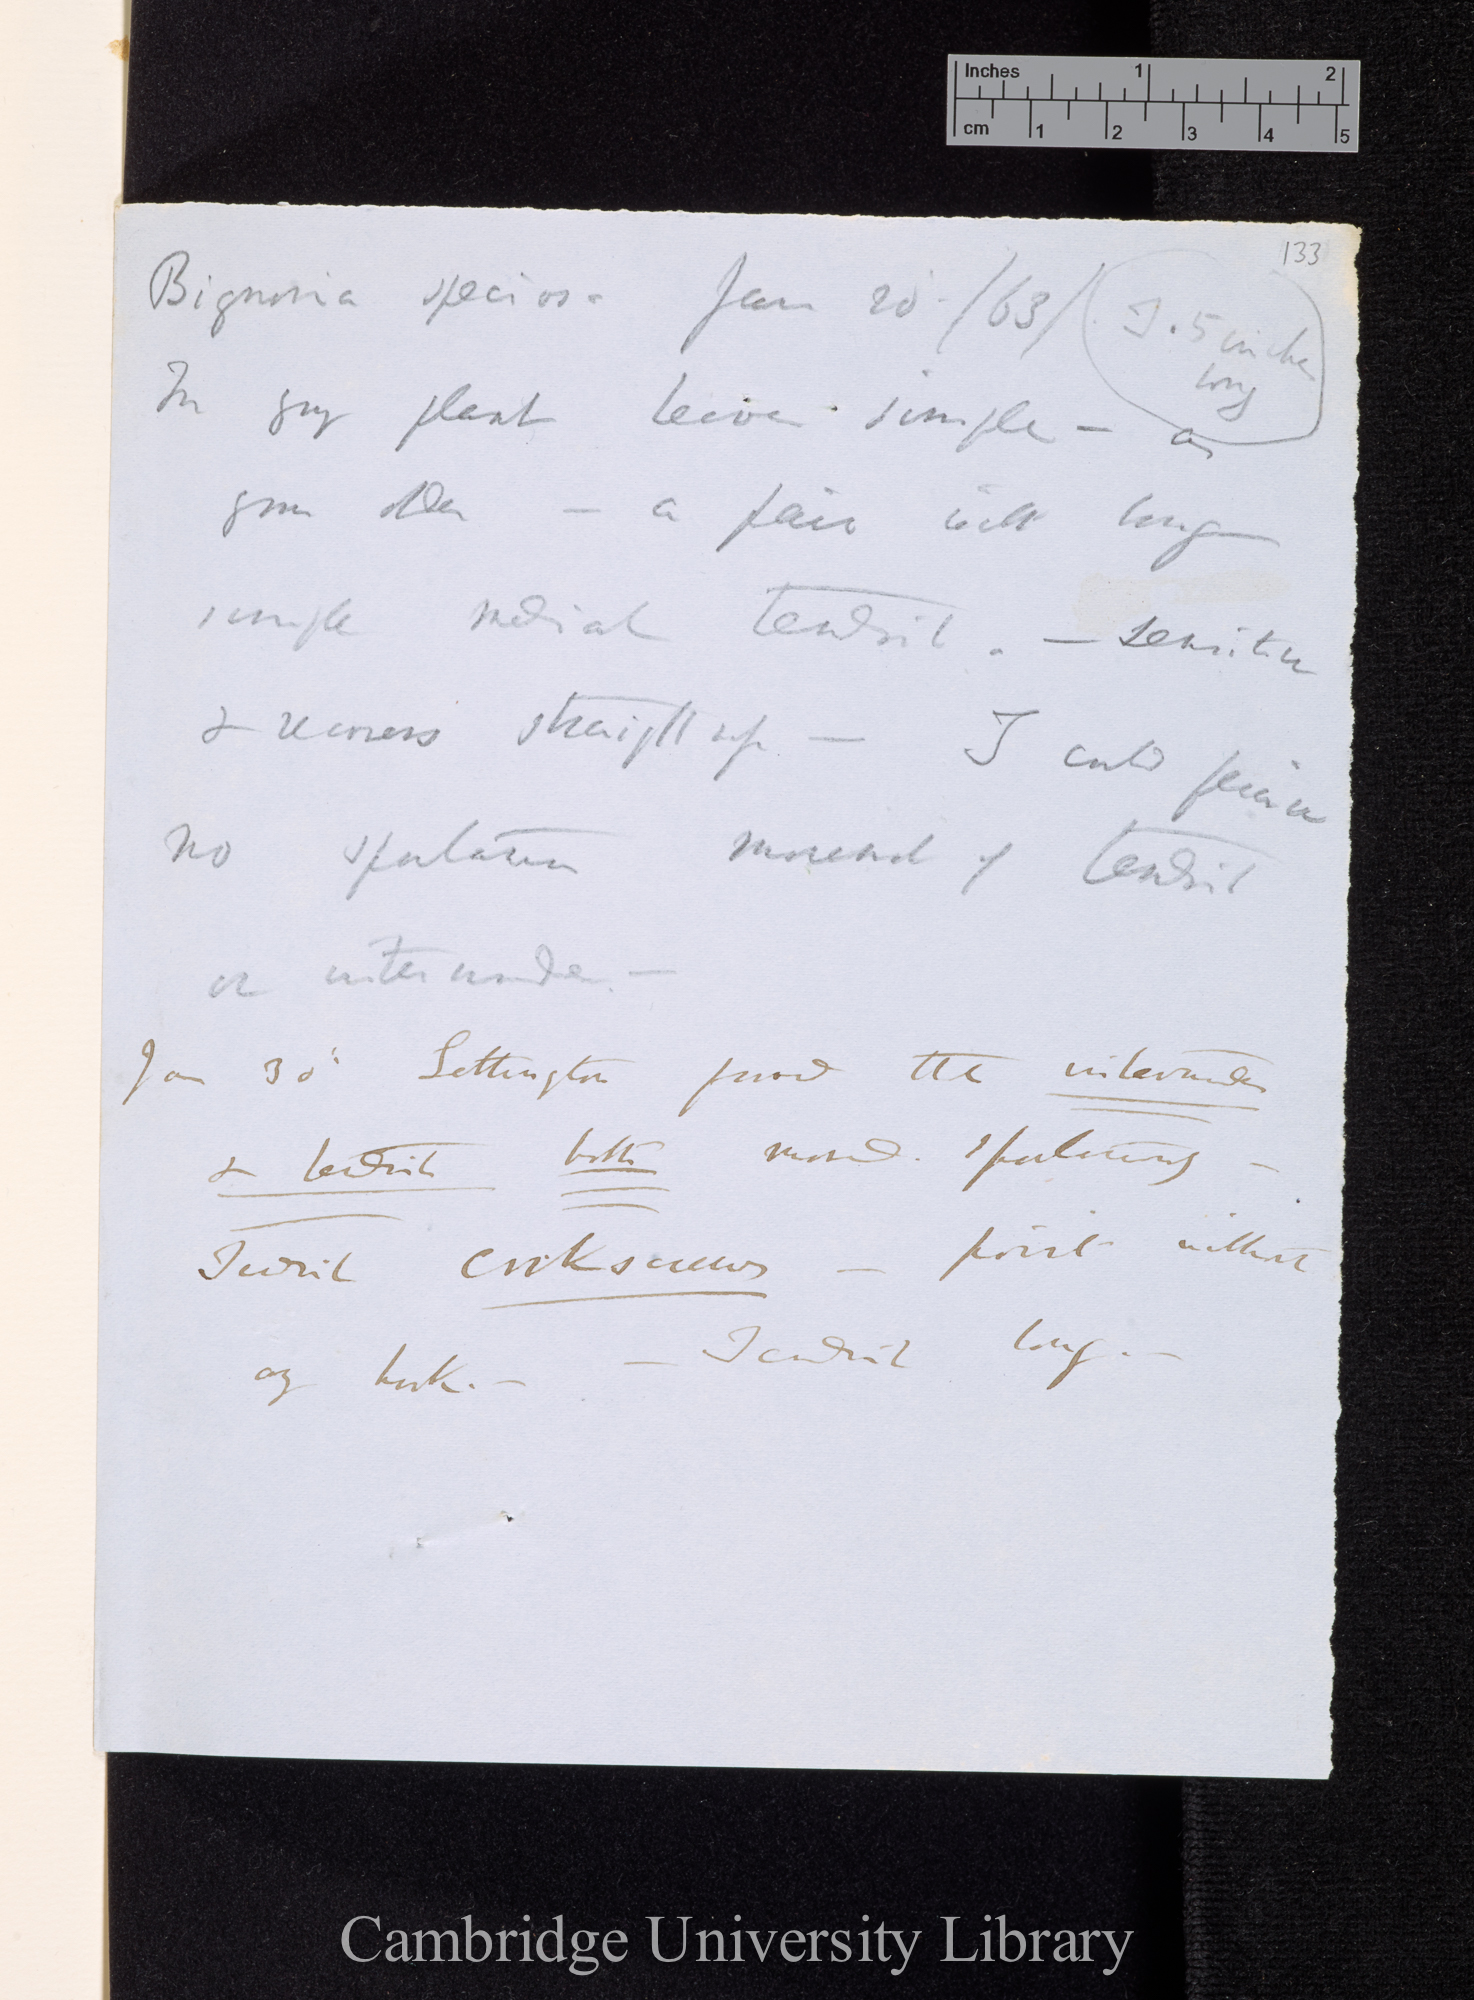 Inches 1 2
cm 1 2 3 4 5
133
Bignonia speciosa Jan 20 /63/
T. 5 inches
long
In yng plant leaves simple — as
grow older — a pair with long
simple medial tendril. — sensitive
& recovers straight up — I could perceive
no spontaneous movement of tendril
or internodes. —
Jan 30th Lettington found the internodes
& tendrils both moved spontaneously —
Tendril corkscrews — point without
any hook. — — Tendril long. —
Cambridge University Library